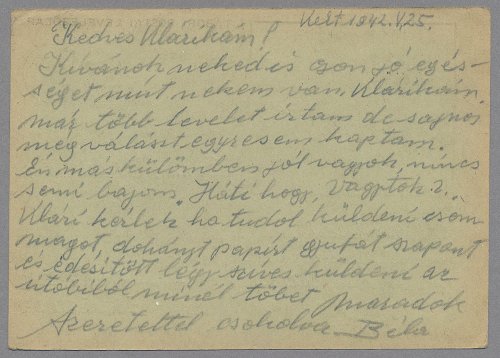 Kelt 1942. V. 25.
Kedves Klárikám!
Kivánok neked is ojon jó egés-
séget mint nekem van. Klárikám
már több levelet írtam de sajnos
még választ egyre sem kaptam.
Én máskülömben jól vagyok, nincs
semi bajom. Háti hogy vagytok?
Klári kérlek ha tudol küldeni csom-
magot, dohányt papírt gyufát szapant
és édesítőtt légy szives küldeni az
útobiból minél többet maradok
Szeretettel csokolva Béla